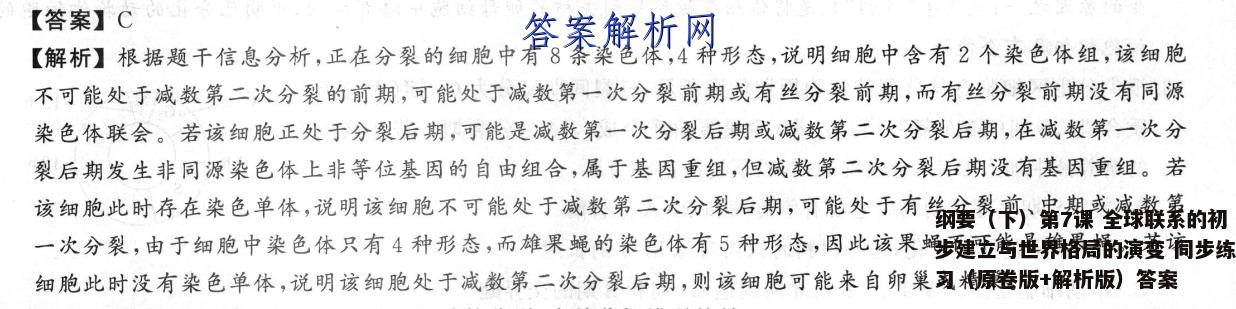 【答案】C
答案解析网
【解析】根据题干信息分析,正在分裂的细胞中有8条染色体,4种形态,说明细胞中含有2个染色体组,该细胞
不可能处于减数第二次分裂的前期,可能处于减数第一次分裂前期或有丝分裂前期,而有丝分裂前期没有同源
染色体联会。若该细胞正处于分裂后期,可能是减数第一次分裂后期或减数第二次分裂后期,在减数第一次分
裂后期发生非同源染色体上非等位基因的自由组合,属于基因重组,但减数第二次分裂后期没有基因重组。若
该细胞此时存在染色单体,说明该细胞不可能处于减数第二次分裂后期,可能处于有丝分裂前、中期或减数第
一次分裂,由于细胞中染色体只有4种形态,而雄果蝇的染色体有5种形态,因此该果
细胞此时没有染色单体,说明该细胞处于减数第二次分裂后期,则该细胞可能来自卵巢
纲要（下）第7课 全球联系的初
步建立与世界格局的演变 同步练
习（原卷版+解析版）答案